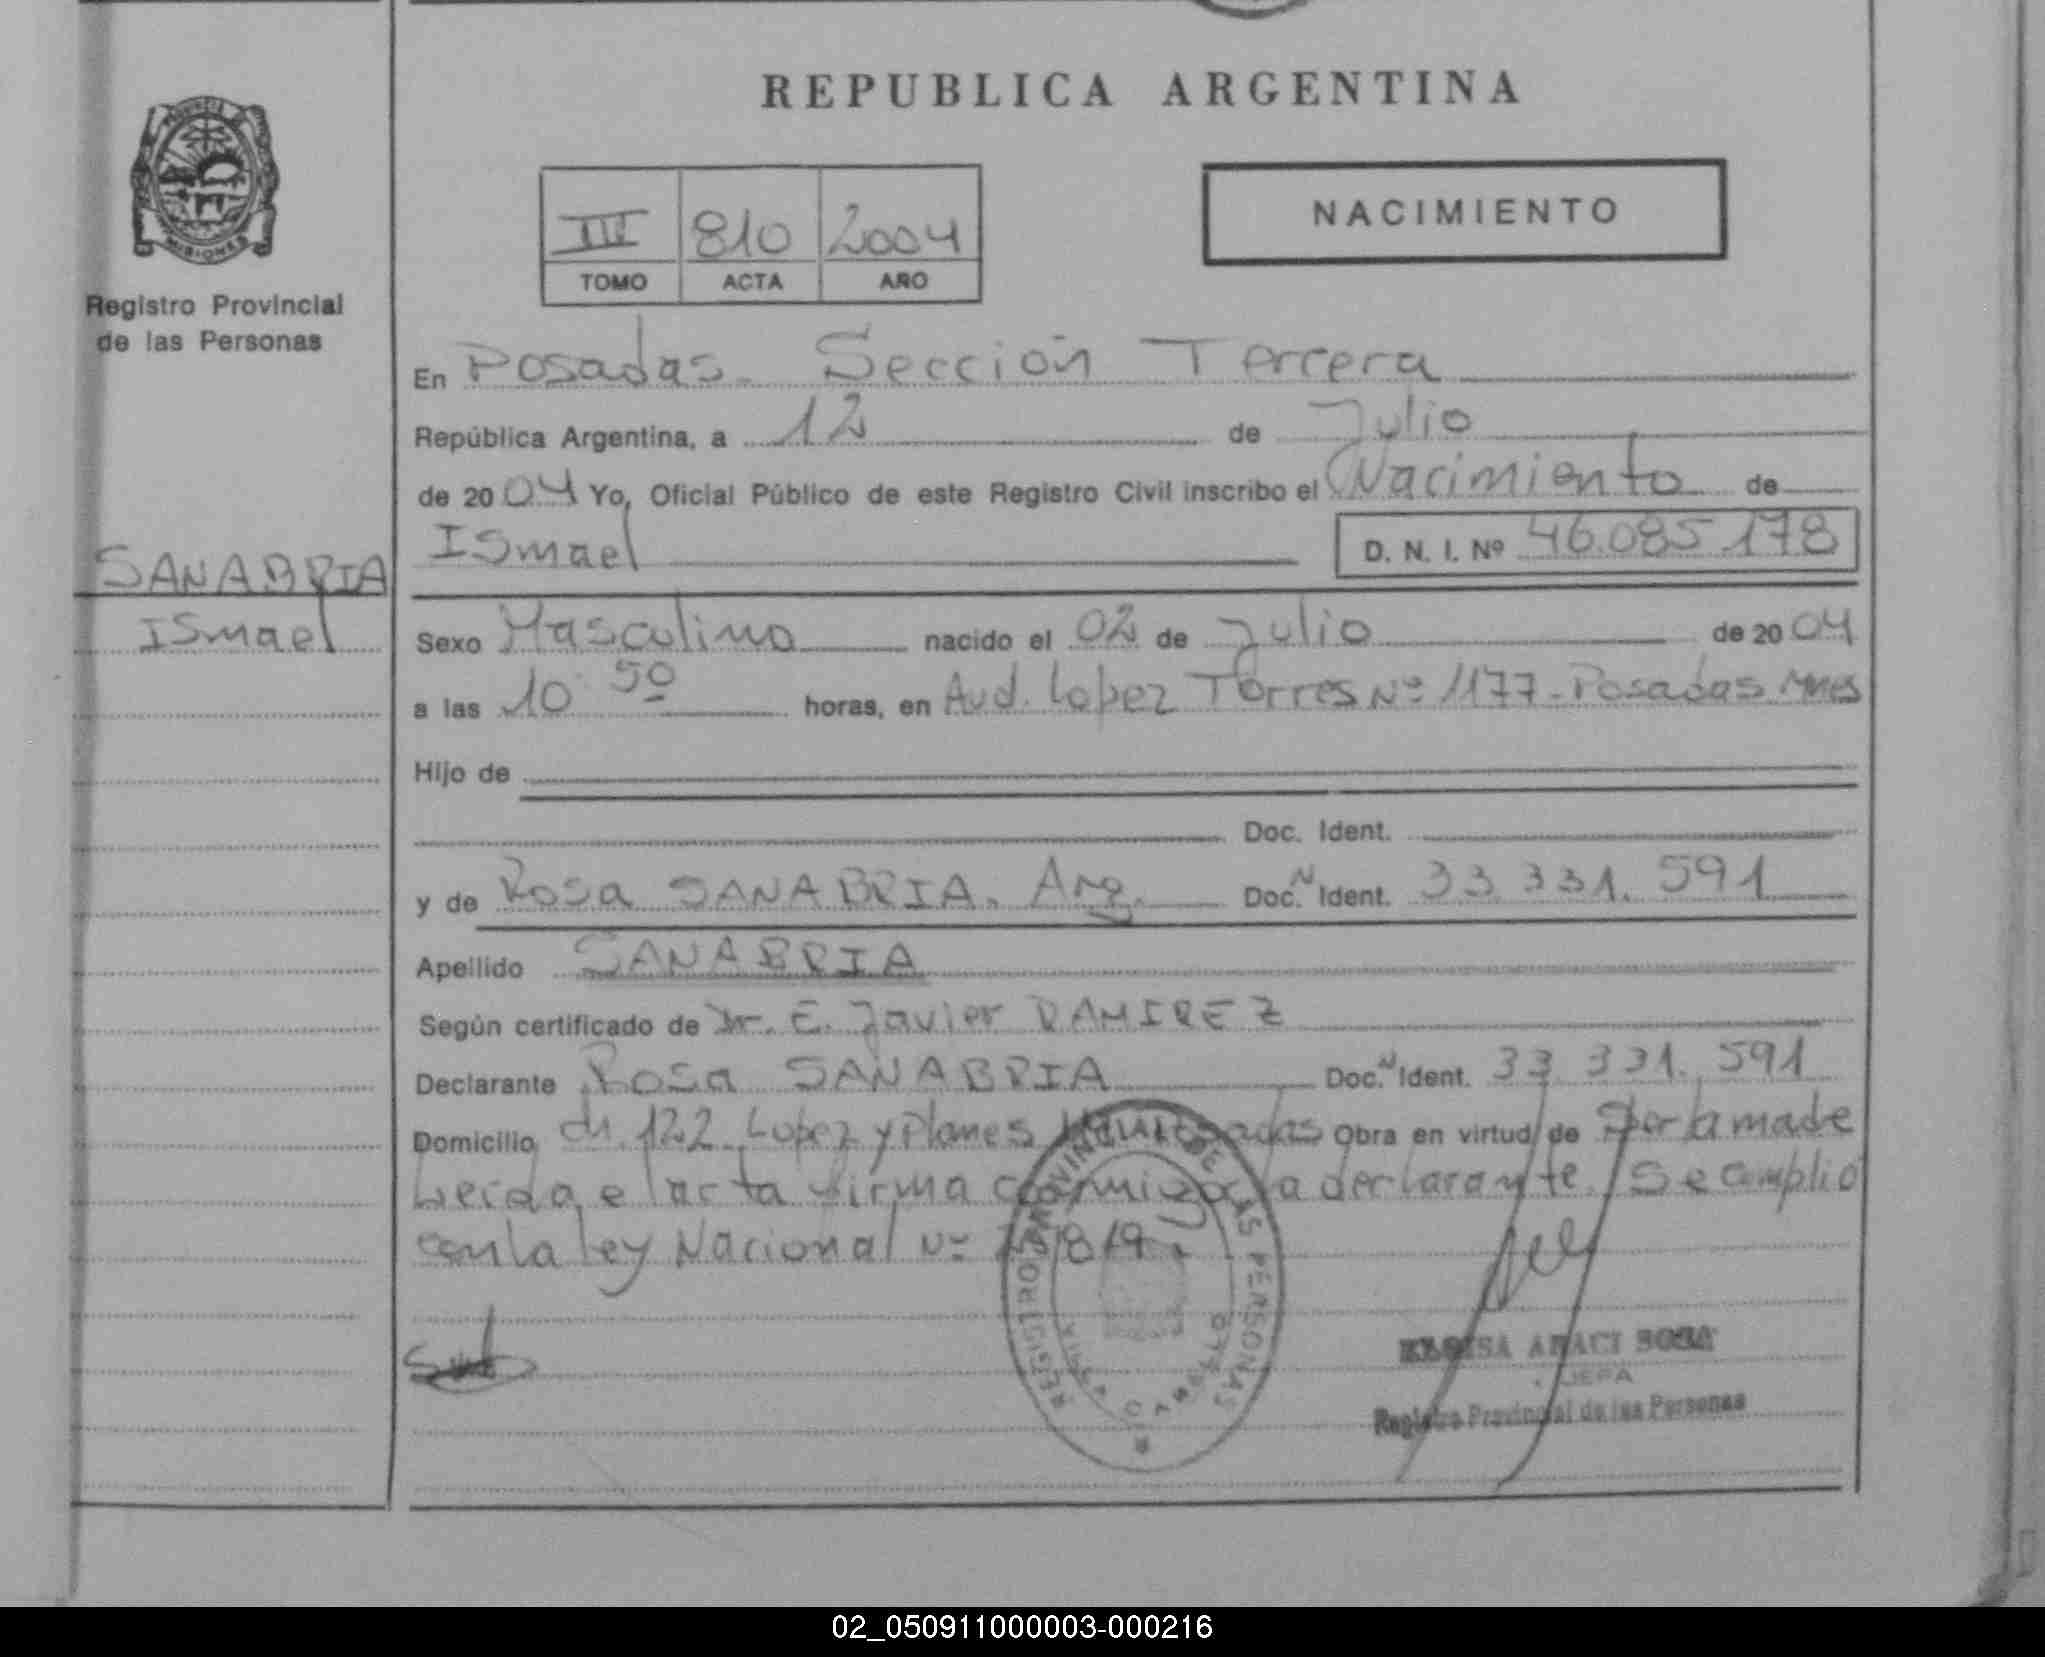 REPUBLICA ARGENTINA
PROVINCIA DE
MISIONES
Registro Provincial
de las Personas
III 810 2004
TOMO ACTA AÑO
NACIMIENTO
En Posadas. Sección Tercera
República Argentina, a 12 de Julio
de 2004 Yo, Oficial Público de este Registro Civil inscribo el Nacimiento de
Ismael D. N. I. Nº 46.085.178
SANABRIA
Ismael
Sexo Masculino nacido el 02 de Julio de 2004
a las 10 50 horas, en Avd. Lopez Torres Nº 1177 - Posadas Mnes
Hijo de
Doc. Ident.
y de Rosa SANABRIA. Arg. Doc. N Ident. 33.331.591
Apellido SANABRIA
Según certificado de Dr. E. Javier RAMIREZ
Declarante Rosa SANABRIA Doc. N Ident. 33.331.591
Domicilio ch. 122 Lopez y Planes Obra en virtud de Ser la madre
Leida el acta firma conmigo la declarante. Se cumplió
con la ley Nacional Nº
REGISTRO PROVINCIAL DE LAS PERSONAS
ELOISA ARACI SOSA
JEFA
Registro Provincial de las Personas
02_050911000003-000216